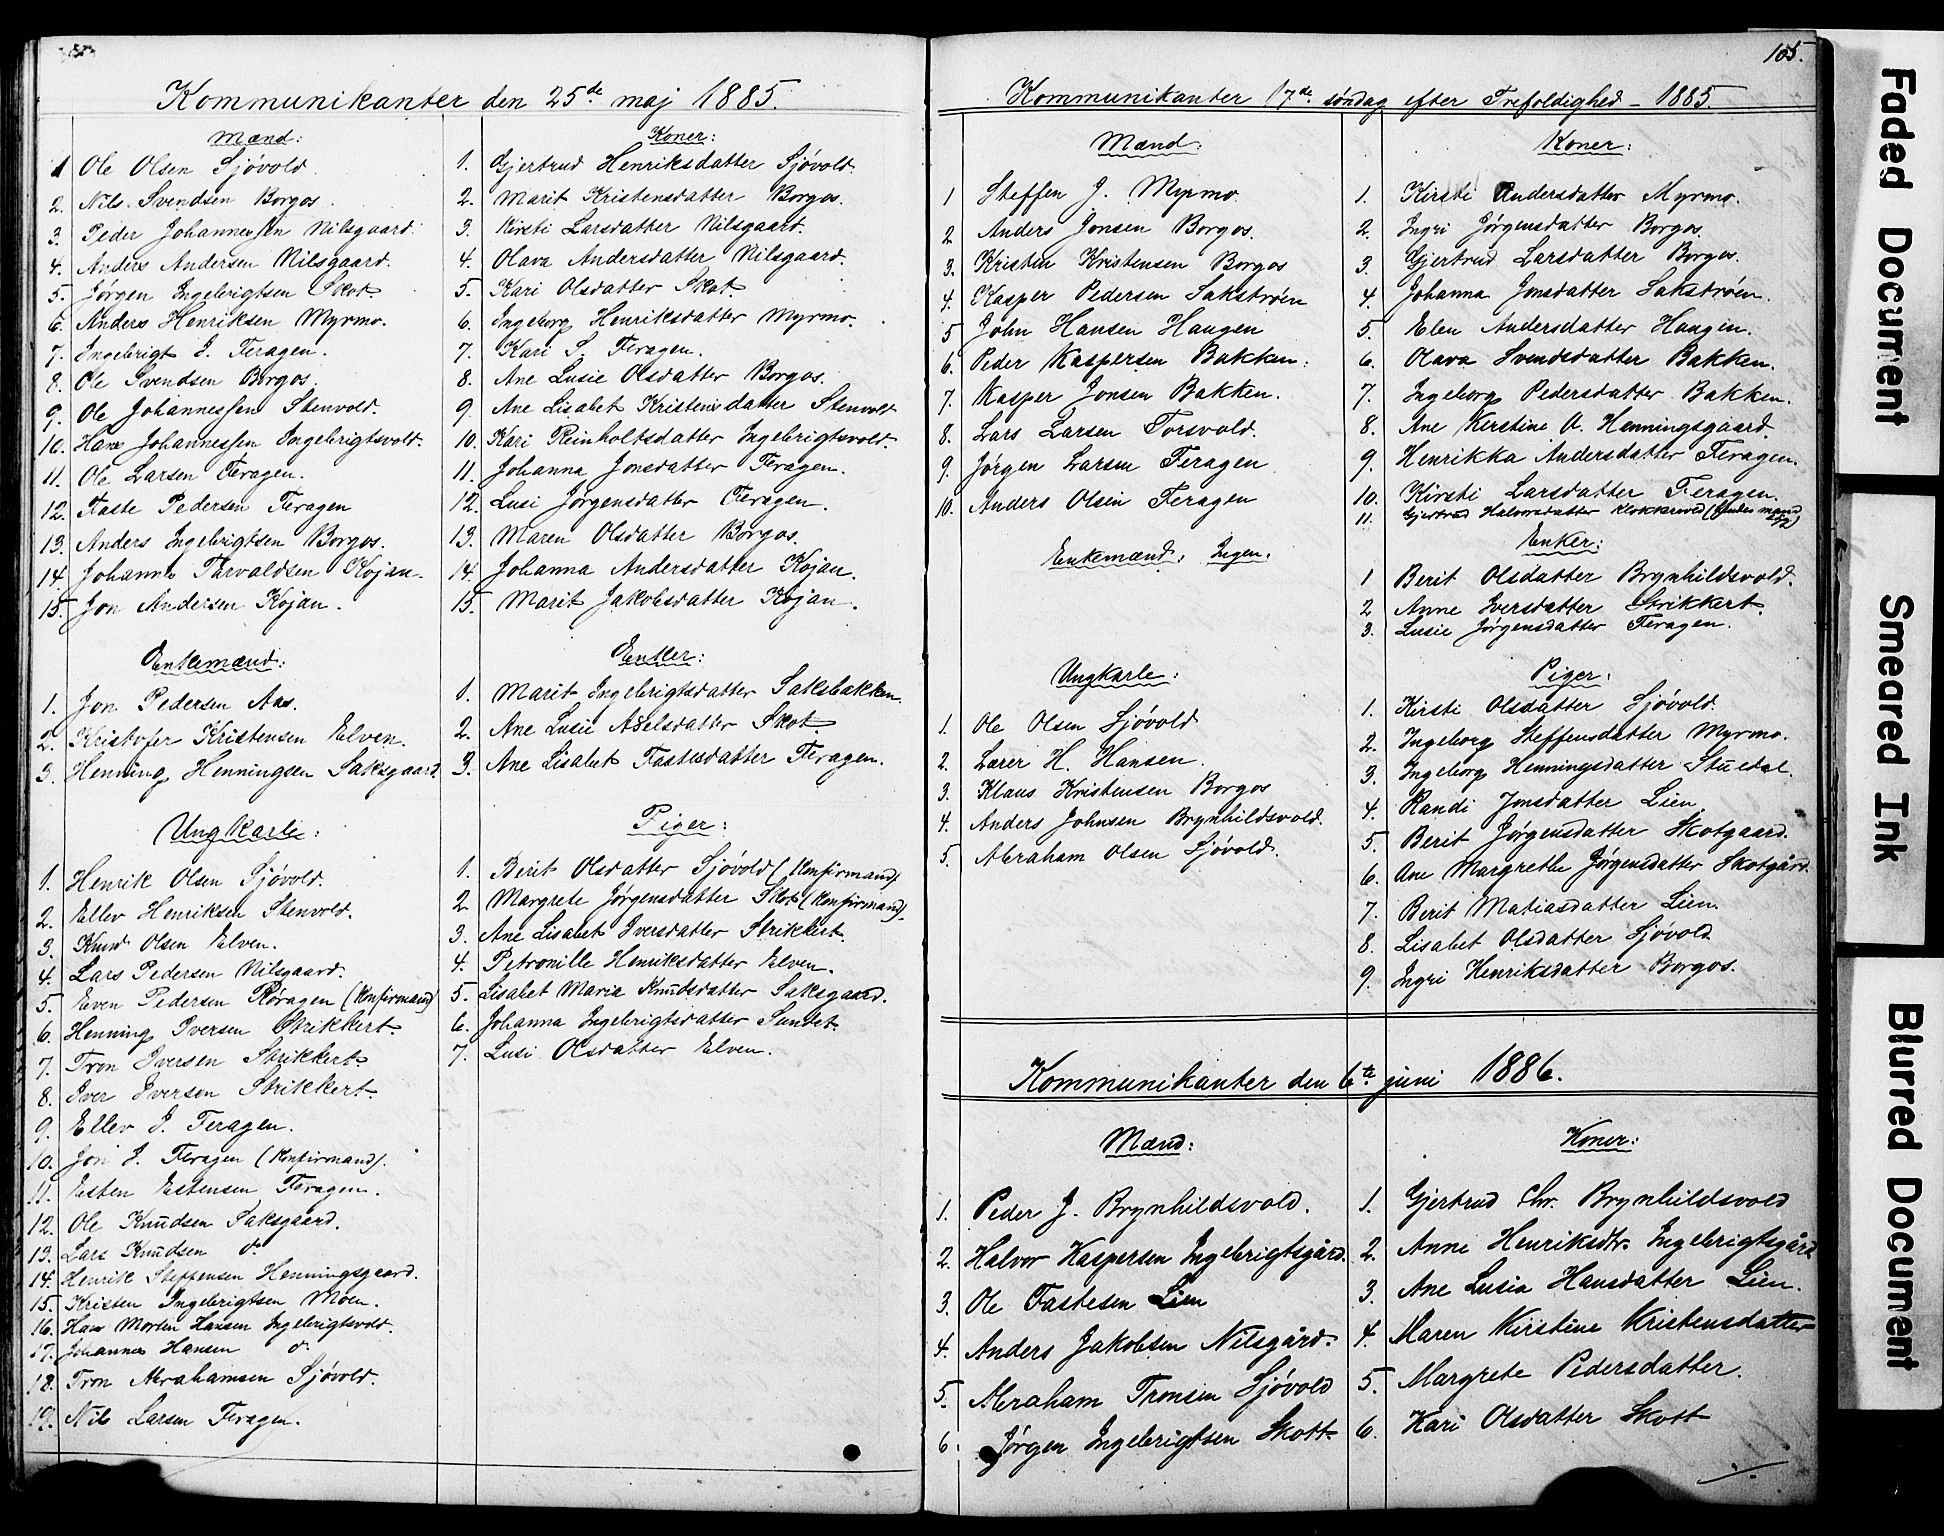 Kommunikanter den 25de maj 1885.
Mænd:
1 Ole Olsen Sjövold
2. Nils Svendsen Borgos.
3. Peder Johannessen Nilsgaard.
4. Anders Andersen Nilsgaard.
5. Jörgen Ingebrigtsen Skot.
6. Anders Henriksen Myrmo.
7. Ingebrigt J. Feragen.
8. Ole Svendsen Borgos.
9. Ole Johannessen Stenvold.
10. Hans Johannessen Ingebrigtsvold.
11. Ole Larsen Feragen.
12. Faste Pedersen Feragen
13. Anders Ingebrigtsen Borgos.
14. Johannes Tarvaldsen Kojan.
15. Jon Andersen Kojan.
Enkemænd:
1. Jon Pedersen Aas.
2. Kristofer Kristensen Elven.
3. Henning Henningsen Saksgaard.
Ungkarle:
1. Henrik Olsen Sjövold.
2. Ellev Henriksen Stenvold.
3. Knud Olsen Elven.
4. Lars Pedersen Nilsgaard.
5. Even Pedersen Röragen (Konfirmand)
6. Henning Iversen Strikkert.
7. Tron Iversen Strikkert.
8. Iver Iversen Strikkert.
9. Ellev J. Feragen.
10. Jon J. Feragen (Konfirmand).
11. Esten Estensen Feragen.
12. Ole Knudsen Saksgaard.
13. Lars Knudsen do
14. Henrik Steffensen Henningsgaard.
15. Kristen Ingebrigtsen Moen.
16. Hans Morten Hansen Ingebrigtsvold.
17. Johannes Hansen do
18. Tron Abrahamsen Sjövold.
19. Nils Larsen Feragen.
Koner:
1. Gjertrud Henriksdatter Sjövold.
2. Marit Kristensdatter Borgos.
3. Kirsti Larsdatter Nilsgaard.
4. Olava Andersdatter Nilsgaard.
5. Kari Olsdatter Skot.
6. Ingeborg Henriksdatter Myrmo.
7. Kari S. Feragen.
8. Ane Lusie Olsdatter Borgos.
9. Ane Lisabet Kristensdatter Stenvold
10. Kari Reinholtsdatter Ingebrigtsvold.
11. Johanna Jonsdatter Feragen.
12. Lusi Jørgensdatter Feragen.
13. Maren Olsdatter Borgos.
14. Johanna Andersdatter Kojan.
15. Marit Jakobsdatter Kojan.
Enker:
1. Marit Ingebrigtsdatter Saksbakken.
2. Ane Lusie Axelsdatter Skot.
3. Ane Lisabet Fastesdatter Feragen.
Piger:
1. Berit Olsdatter Sjövold (Konfirmand).
2 Margrete Jørgensdatter Skot (Konfirmand).
3. Ane Lisabet Iversdatter Strikkert.
4. Petronille Henriksdatter Elven.
5. Lisabet Maria Knudsdatter Saksgaard.
6. Johanna Ingebrigtsdatter Sundet.
7. Lusi Olsdatter Elven.
105.
Kommunikanter 17de søndag efter Trefoldighed - 1885.
Mænd:
1 Steffen J. Myrmo
2 Anders Jonsen Borgos.
3. Kristen Kristensen Borgos
4. Kasper Pedersen Sakström
5 John Hansen Haugen
6. Peder Kaspersen Bakken.
7. Kasper Jonsen Bakken.
8. Lars Larsen Torsvold.
9. Jørgen Larsen Feragen
10. Anders Olsen Feragen
Enkemænd: Ingen.
Ungkarle:
1. Ole Olsen Sjövold
2. Lærer H. Hansen.
3. Klaus Kristensen Borgos
4. Anders Johnsen Brynhildsvold.
5. Abraham Olsen Sjövold.
Koner:
1. Kirsti Andersdatter Myrmo.
2. Ingri Jørgensdatter Borgos.
3. Gjertrud Larsdatter Borgos.
4. Johanna Jonsdatter Sakström.
5. Elen Andersdatter Haugen.
6. Olava Svendsdatter Bakken.
7. Ingeborg Pedersdatter Bakken.
8. Ane Kerstine A. Henningsgaard.
9. Henrikka Andersdatter Feragen.
10. Kirsti Larsdatter Feragen.
11. Gjertrud Halvorsdatter Klokkervold (
Enker:
1 Berit Olsdatter Brynhildsvold.
2 Anne Iversdatter Strikkert.
3. Lusie Jørgensdatter Feragen.
Piger:
1. Kirsti Olsdatter Sjövold.
2. Ingeborg Steffensdatter Myrmo.
3. Ingeborg Henningsdatter Stuedal.
4. Randi Jonsdatter Lien
5. Berit Jørgensdatter Skotgaard.
6. Ane Margrethe Jørgensdatter Skotgård.
7. Berit Matiasdatter Lien.
8. Lisabet Olsdatter Sjövold.
9. Ingri Henriksdatter Borgos.
Kommunikanter den 6te juni 1886.
Mænd:
1. Peder J. Brynhildsvold.
2. Halvor Kaspersen Ingebrigtsgård.
3. Ole Fastesen Lien
4. Anders Jakobsen Nilsgård.
5. Abraham Tronsen Sjövold
6. Jørgen Ingebrigtsen Skott
Koner:
1. Gjertrud Chr. Brynhildsvold
2. Anne Henriksdtr. Ingebrigtsgård
3. Ane Lusia Hansdatter Lien.
4. Maren Kirstine Kristensdatter
5. Margrete Pedersdatter.
6. Kari Olsdatter Skott
Faded Document
Smeared Ink
Blurred Document